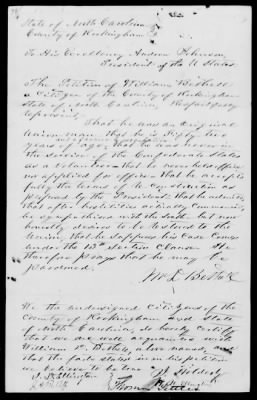 State of North Carolina
County of Rockingham
To His Excellency Andrew Johnson
President of the U States
The Petition of William Bethell
a Citizen of the County of Rockingham
State of North Carolina, Respectfully
represents
That he was an original
Union man that he is sixty two
years of age, that he was never in
the service of the Confederate States
as a volunteer that he never held office
nor applied for office that he accepts
fully the terms of Reconstruction as
proposed by the President that he admits
that after hostilities actually commenced,
he sympathised with the South but now
honestly desires to be restored to the
Union, that he supposes his case comes
under the 13th section clause. He
therefore prays that he may be
pardoned.
Wm Bethell
We the undersigned Citizens of the
County of Rockingham and State
of North Carolina, do hereby certify
that we are well acquainted with
William Bethell, above named, and
that the facts stated in his petition
we believe to be true
J. Ellington
Thomas Settle